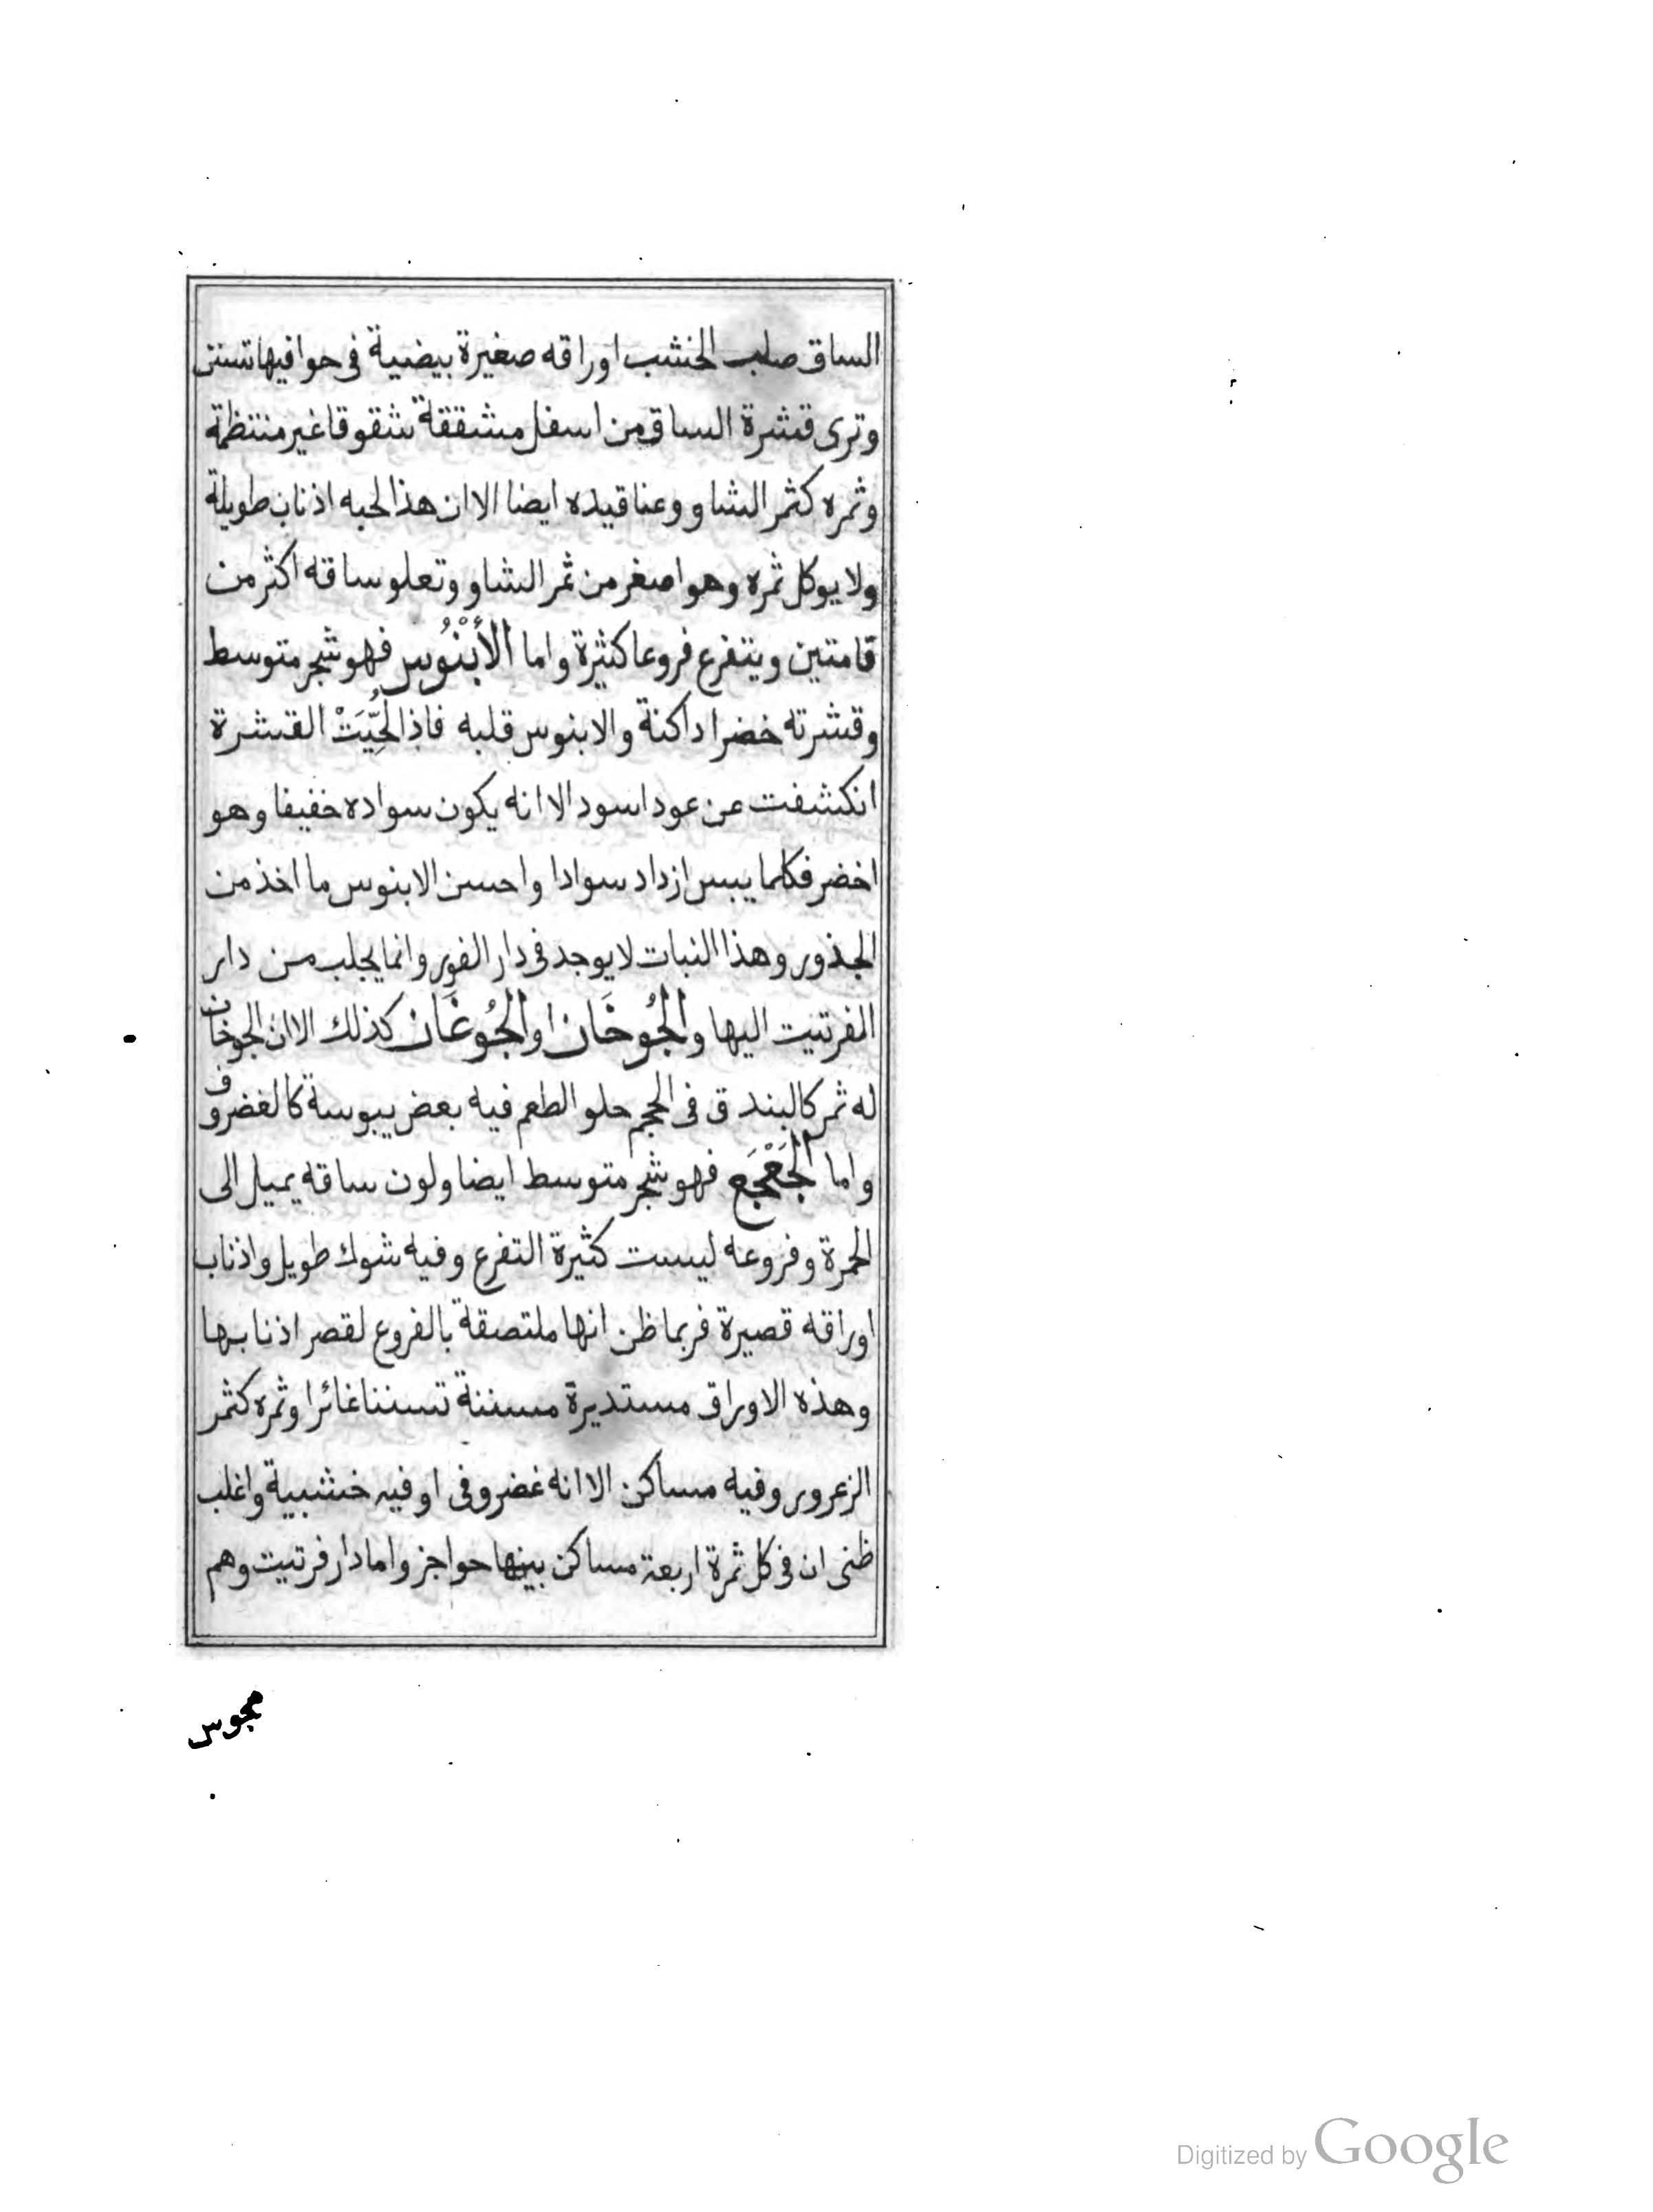 الساق صلب الخشب اوراقه صغيرة بيضية فى حوافيها تسنن
وترى قشرة الساق من اسفل مشققة شقوقا غير منتظمة
وثمره كثمر الشاو وعناقيده ايضا الا ان هذا لحبه اذناب طويلة
ولا يوكل ثمره وهو اصغر من ثمر الشاو وتعلو ساقه اكثر من
قامتين ويتفرع فروعا كثيرة واما الأَبْنُوس فهو شجر متوسط
وقشرته خضرا داكنة والابنوس قلبه فاذا لُحِّيَتْ القشرة
انكشفت عن عود اسود الا انه يكون سواده خفيفا وهو
اخضر فكلما يبس ازداد سوادا واحسن الابنوس ما اخذ من
الجذور وهذا النبات لا يوجد فى دار الفور وانما يجلب من دار
الفرتيت اليها والجُوخَان او الجُوغَان كذلك الا ان الجوخان
له ثمر كالبندق فى الحجم حلو الطعم فيه بعض يبوسة كالغضروف
واما الجَعْجَع فهو شجر متوسط ايضا ولون ساقه يميل الى
الحمرة وفروعه ليست كثيرة التفرع وفيه شوك طويل واذناب
اوراقه قصيرة فربما ظن انها ملتصقة بالفروع لقصر اذنابها
وهذه الاوراق مستديرة مسننة تسننا غائرا وثمره كثمر
الزعرور وفيه مساكن الا انه غضروفى او فيه خشبية واغلب
ظنى ان فى كل ثمرة اربعة مساكن بينها حواجز واما دار فرتيت وهم
مجوس
Digitized by Google